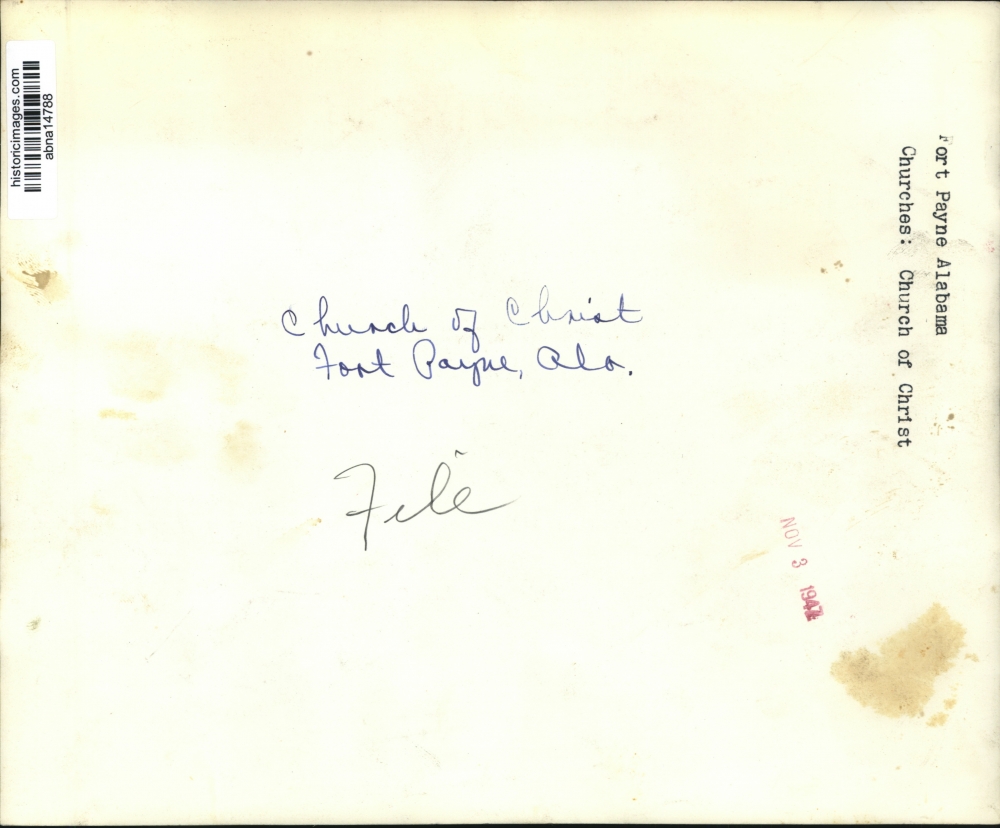 historicimages.com
abna14788
Church of Christ
Fort Payne, Ala.
File
Fort Payne Alabama
Churches: Church of Christ
NOV 3 1947